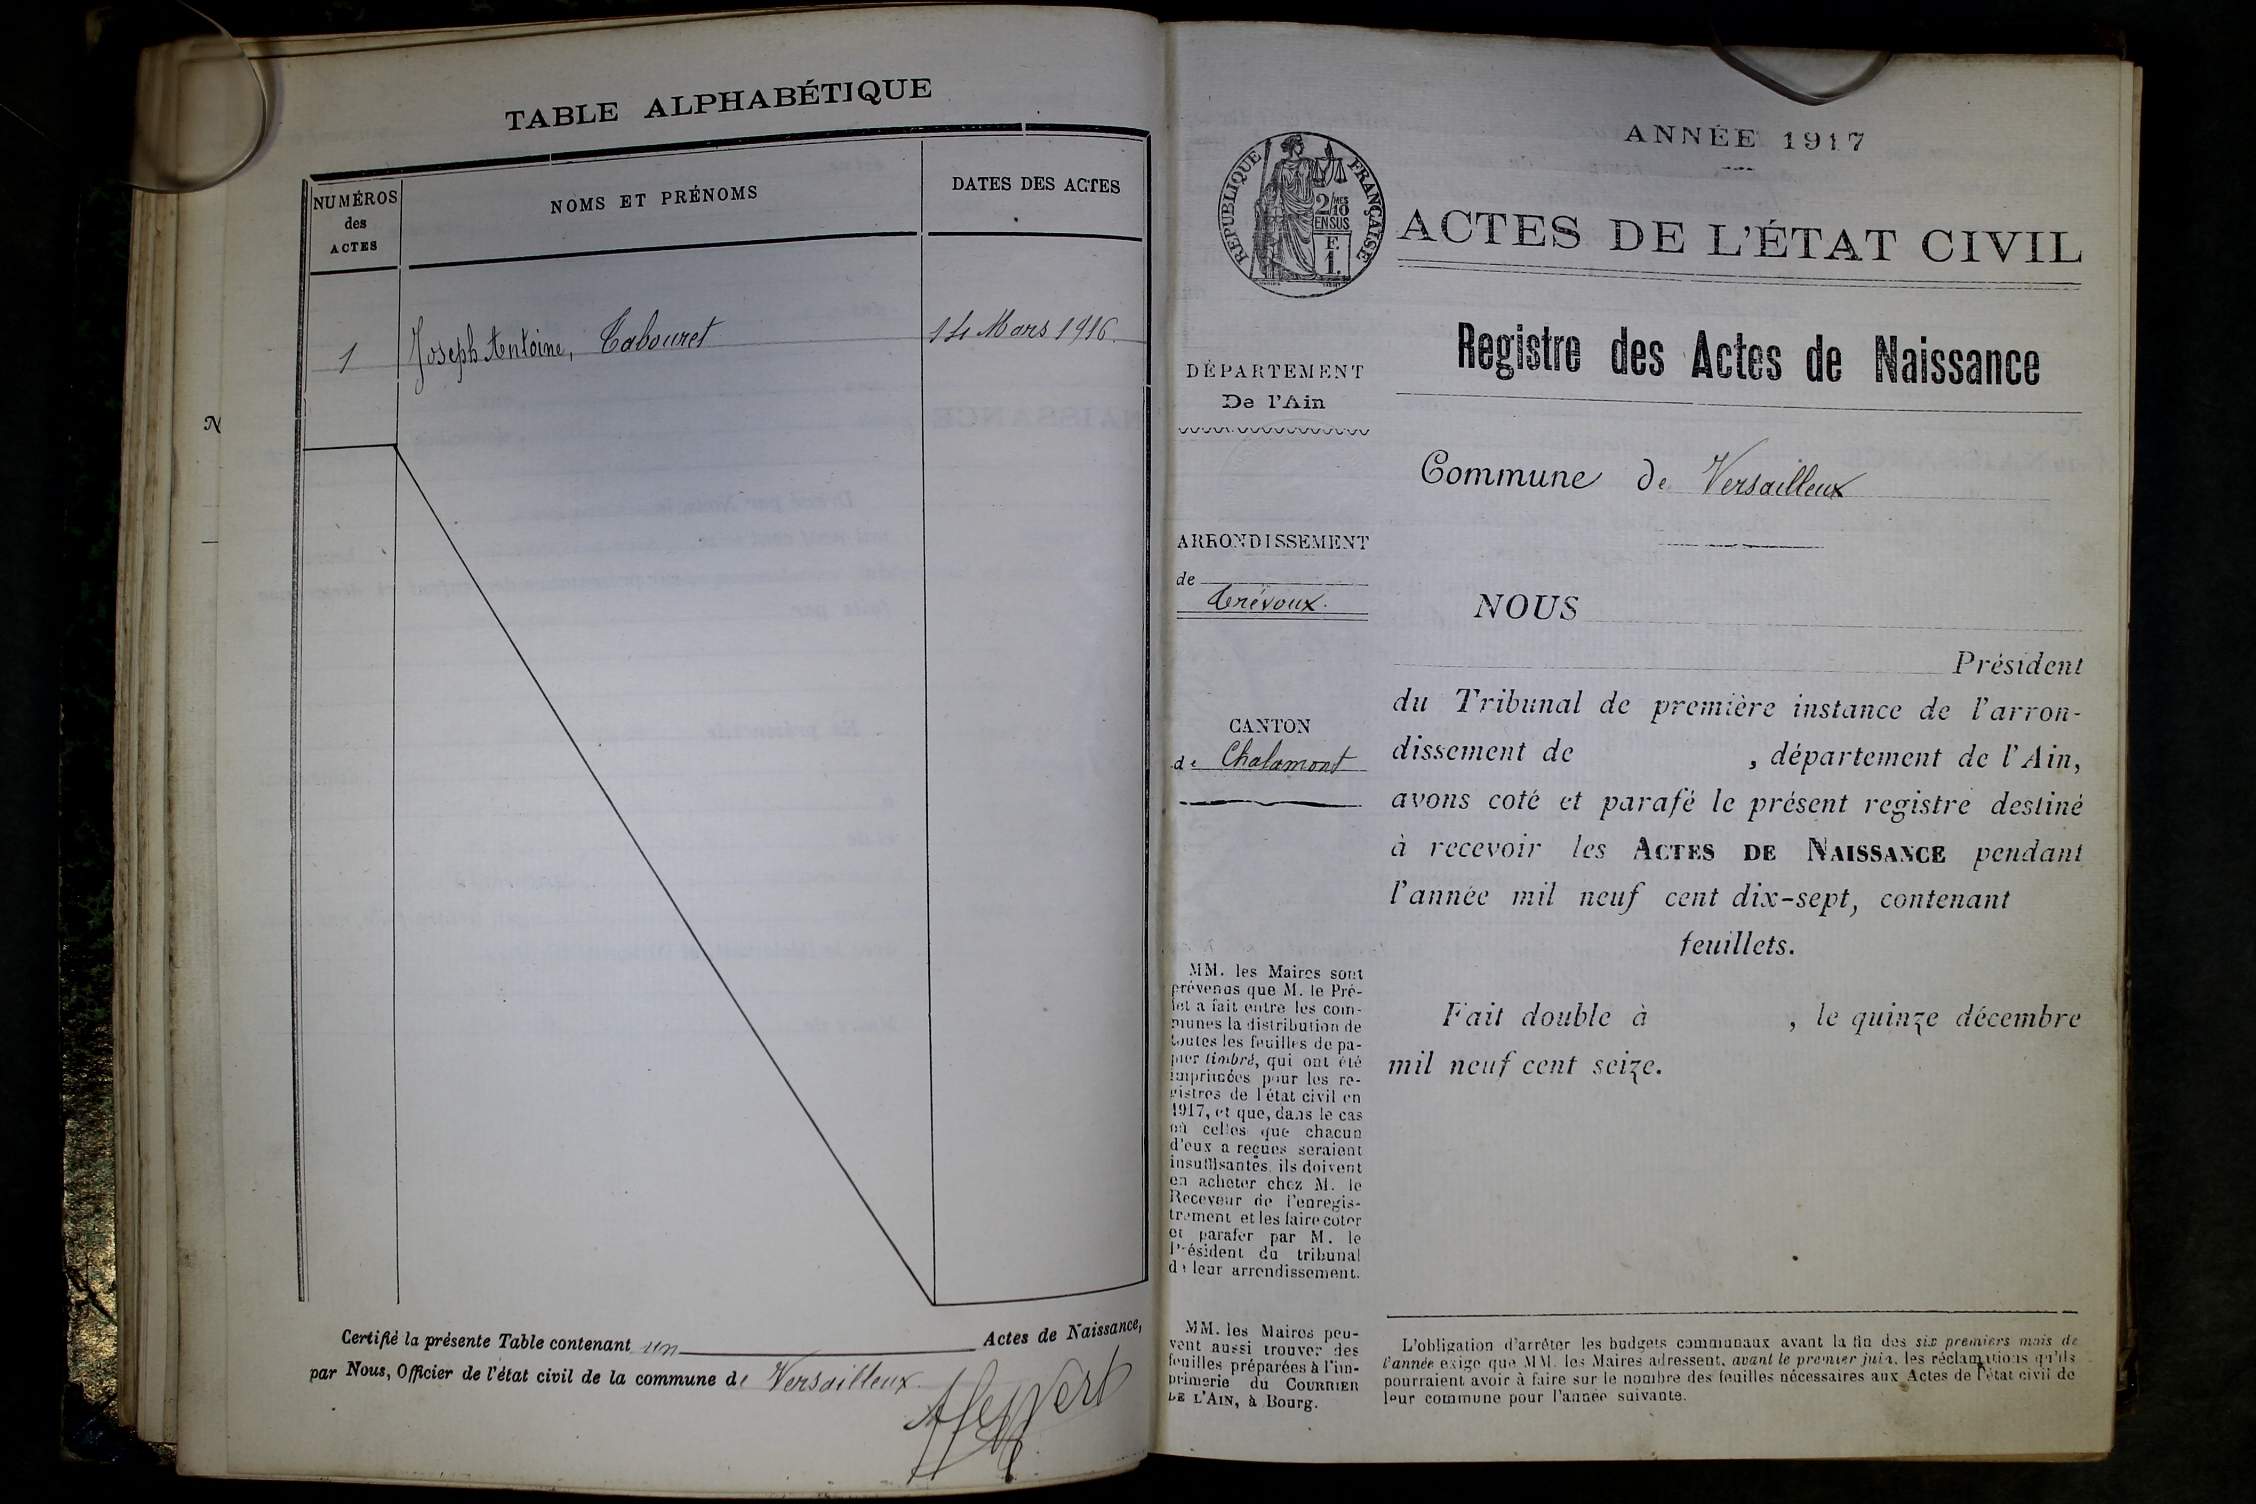 TABLE ALPHABÉTIQUE
NUMÉROS
des
ACTES
NOMS ET PRÉNOMS
DATES DES ACTES
1
Joseph Antoine, Tabouret
14 Mars 1916
N
Certifié la présente Table contenant un Actes de Naissance,
par Nous, Officier de l'état civil de la commune de Versailleux
ANNÉE 1917
RÉPUBLIQUE FRANÇAISE
2/10 MES
EN SUS
F.
1.
ACTES DE L'ÉTAT CIVIL
Registre des Actes de Naissance
DÉPARTEMENT
De l'Ain
Commune de Versailleux
ARRONDISSEMENT
de
Trévoux.
CANTON
de Chalamont
NOUS
Président
du Tribunal de première instance de l'arron-
dissement de , département de l'Ain,
avons coté et parafé le présent registre destiné
à recevoir les ACTES DE NAISSANCE pendant
l'année mil neuf cent dix-sept, contenant
feuillets.
Fait double à , le quinze décembre
mil neuf cent seize.
MM. les Maires sont
prévenus que M. le Pré-
fet a fait entre les com-
munes la distribution de
toutes les feuilles de pa-
pier timbré, qui ont été
imprimées pour les re-
gistres de l'état civil en
1917, et que, dans le cas
où celles que chacun
d'eux a reçues seraient
insuffisantes, ils doivent
en acheter chez M. le
Receveur de l'enregis-
trement et les faire coter
et parafer par M. le
Président du tribunal
de leur arrondissement.
MM. les Maires peu-
vent aussi trouver des
feuilles préparées à l'im-
primerie du COURRIER
DE L'AIN, à Bourg.
L'obligation d'arrêter les budgets communaux avant la fin des six premiers mois de
l'année exige que MM. les Maires adressent, avant le premier juin, les réclamations qu'ils
pourraient avoir à faire sur le nombre des feuilles nécessaires aux Actes de l'état civil de
leur commune pour l'année suivante.